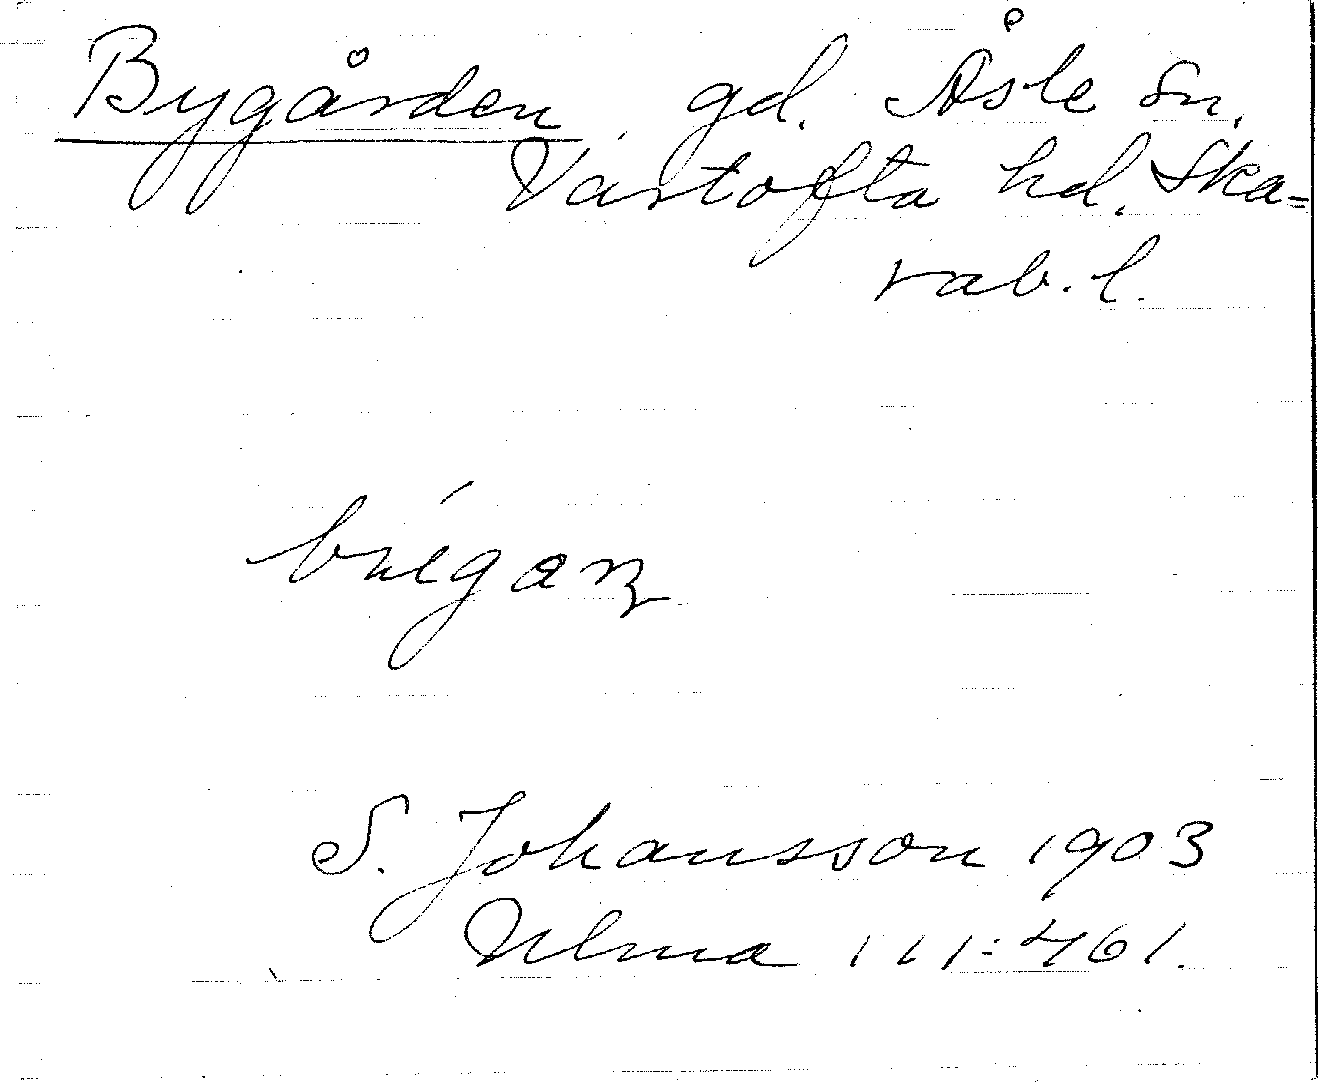 Bygården, gd. Åsle sn.
Vartofta hd. Ska=
rab. l.
S. Johansson 1903
Ulma 111:461.